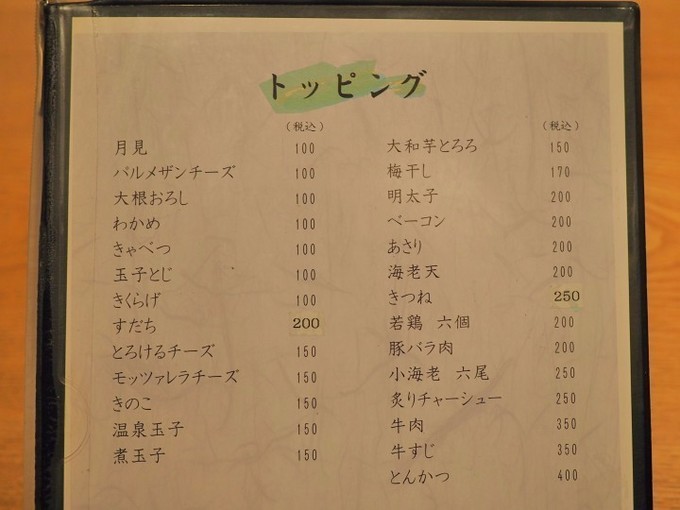 トッピング
(税込)
月見 100
パルメザンチーズ 100
大根おろし 100
わかめ 100
きゃべつ 100
玉子とじ 100
きくらげ 100
すだち 200
とろけるチーズ 150
モッツァレラチーズ 150
きのこ 150
温泉玉子 150
煮玉子 150
(税込)
大和芋とろろ 150
梅干し 170
明太子 200
ベーコン 200
あさり 200
海老天 200
きつね 250
若鶏 六個 200
豚バラ肉 200
小海老 六尾 250
炙りチャーシュー 250
牛肉 350
牛すじ 350
とんかつ 400